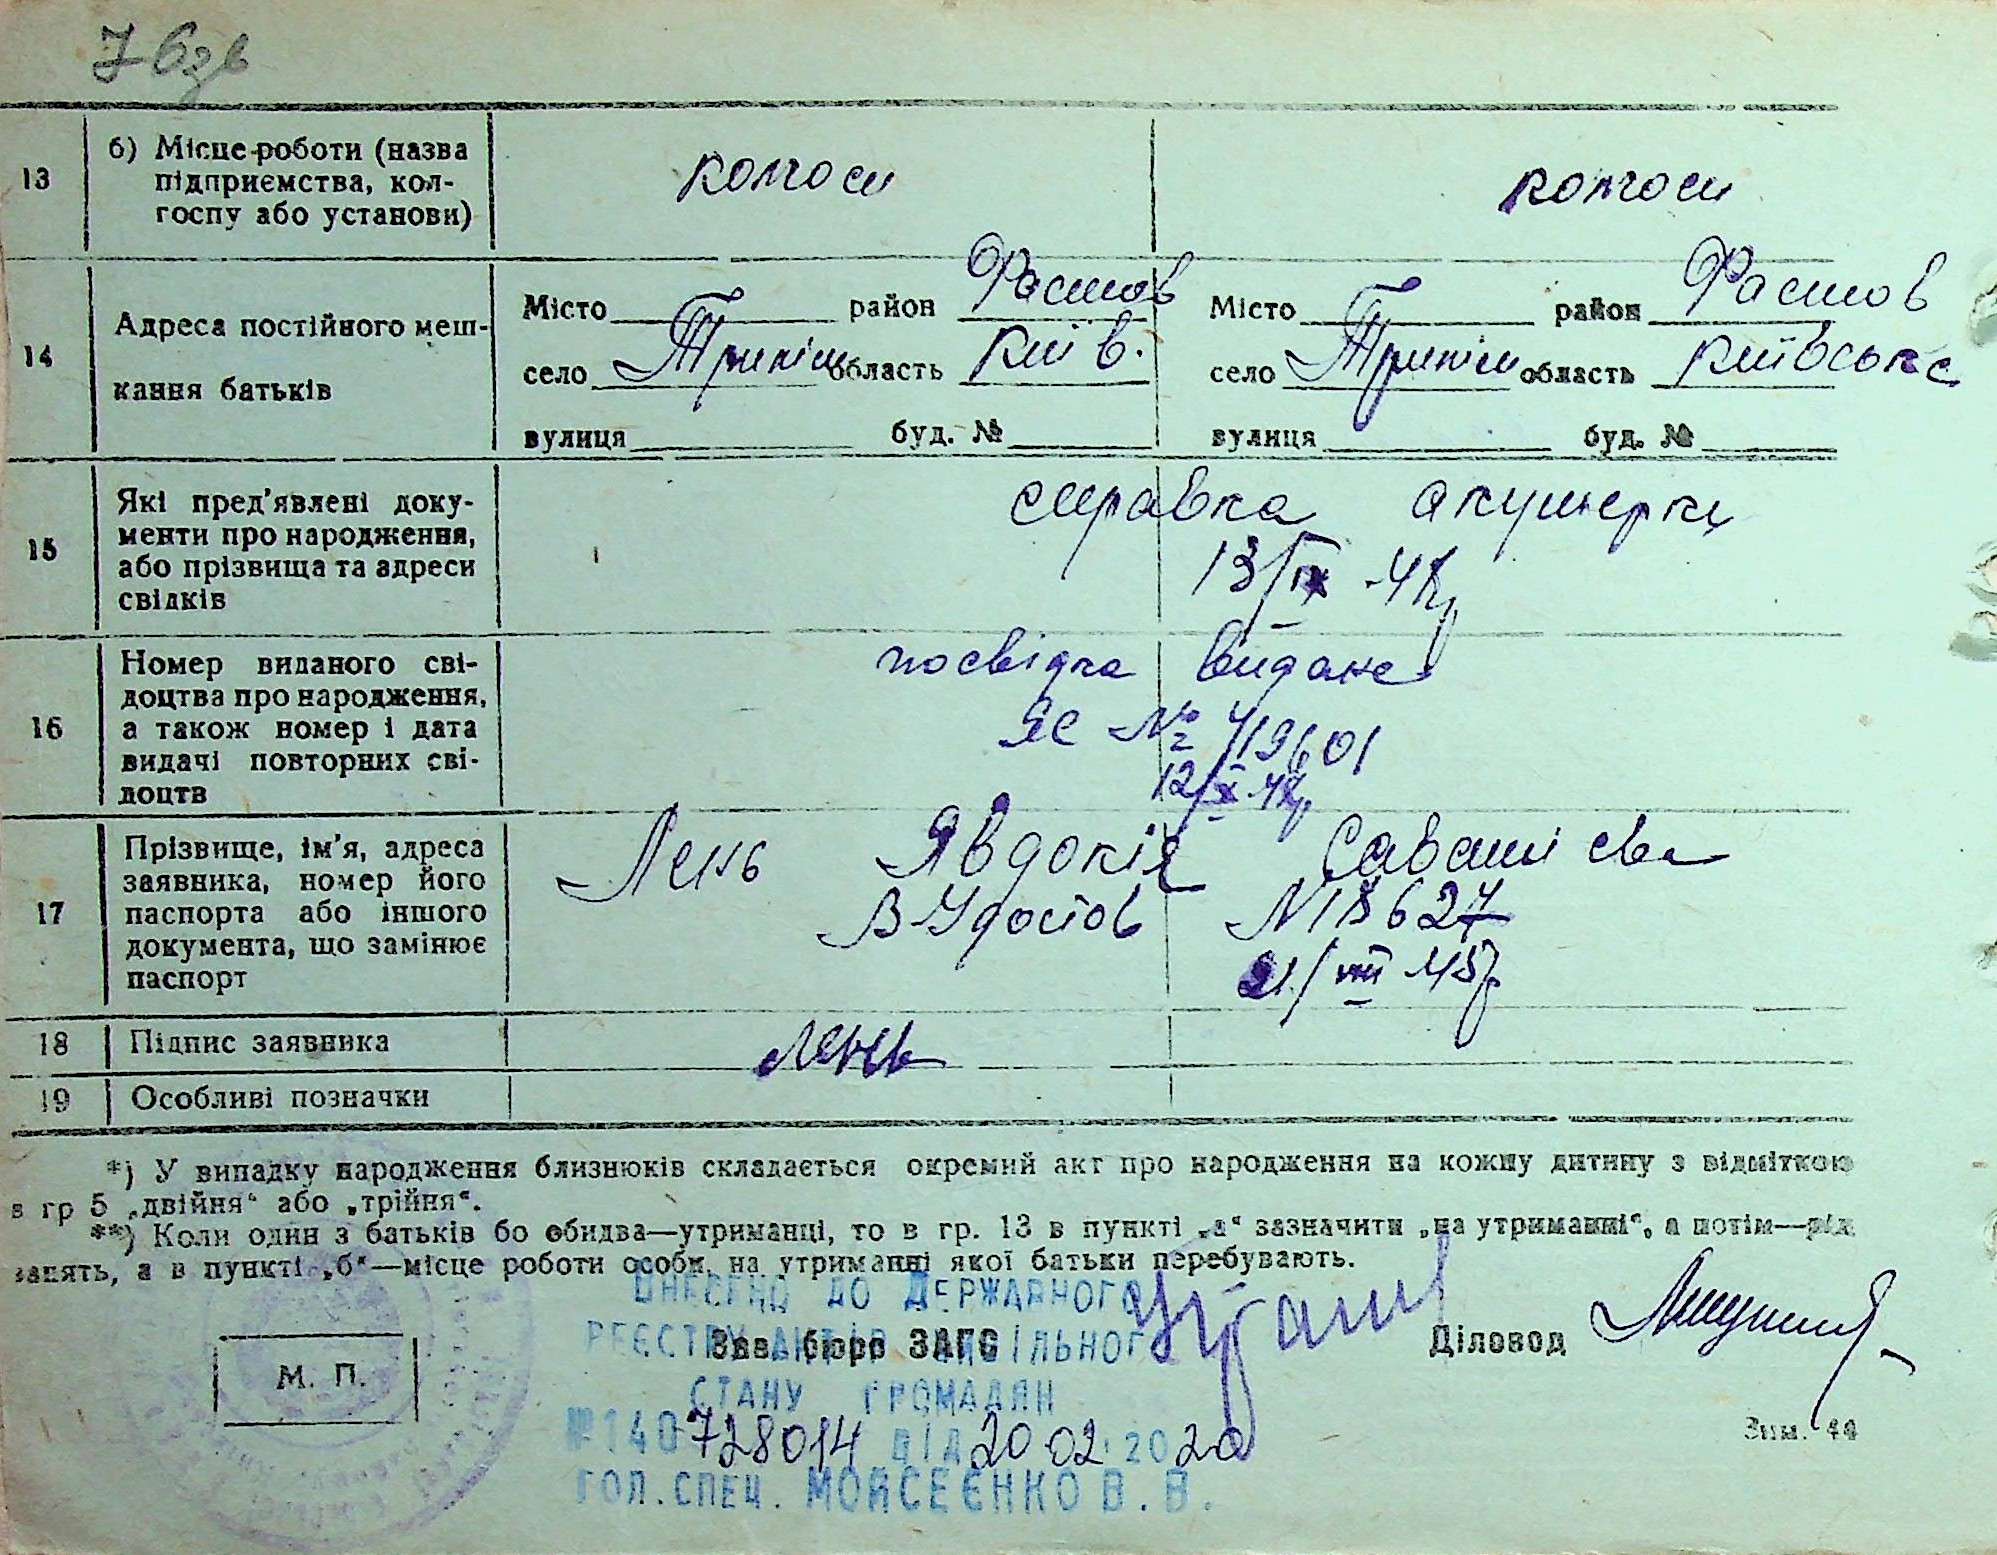 76зв
13
б) Місце роботи (назва
підприємства, кол-
госпу або установи)
колгосп
колгосп
14
Адреса постійного меш-
кання батьків
Місто район Фастов
село Трипіси область Київ.
вулиця буд. №
Місто район Фастов
село Трипіси область Київська
вулиця буд. №
15
Які пред'явлені доку-
менти про народження,
або прізвища та адреси
свідків
справка акушерки
13/IX
16
Номер виданого сві-
доцтва про народження,
а також номер і дата
видачі повторних сві-
доцтв
посвідка видана
ЯС № 419601
17
Прізвище, ім'я, адреса
заявника, номер його
паспорта або іншого
документа, що замінює
паспорт
Лень Явдокія Саватіївна
В-Удостов №18627
21/VIII 45р
18
Підпис заявника
Лень
19
Особливі позначки
*) У випадку народження близнюків складається окремий акт про народження на кожну дитину з відміткою
в гр 5 „двійня“ або „трійня“.
**) Коли один з батьків бо обидва—утриманці, то в гр. 13 в пункті „а“ зазначити „на утриманні“, а потім—рід
занять, а в пункті „б“—місце роботи особи, на утриманні якої батьки перебувають.
ВНЕСЕНО ДО ДЕРЖАВНОГО
РЕЄСТРУ АКТІВ ЦИВІЛЬНОГО
Зав. бюро ЗАГС
Діловод
СТАНУ ГРОМАДЯН
М. П.
№140728014 ВІД 20 02 2020
Зам. 44
ГОЛ.СПЕЦ. МОЙСЕЄНКО В.В.